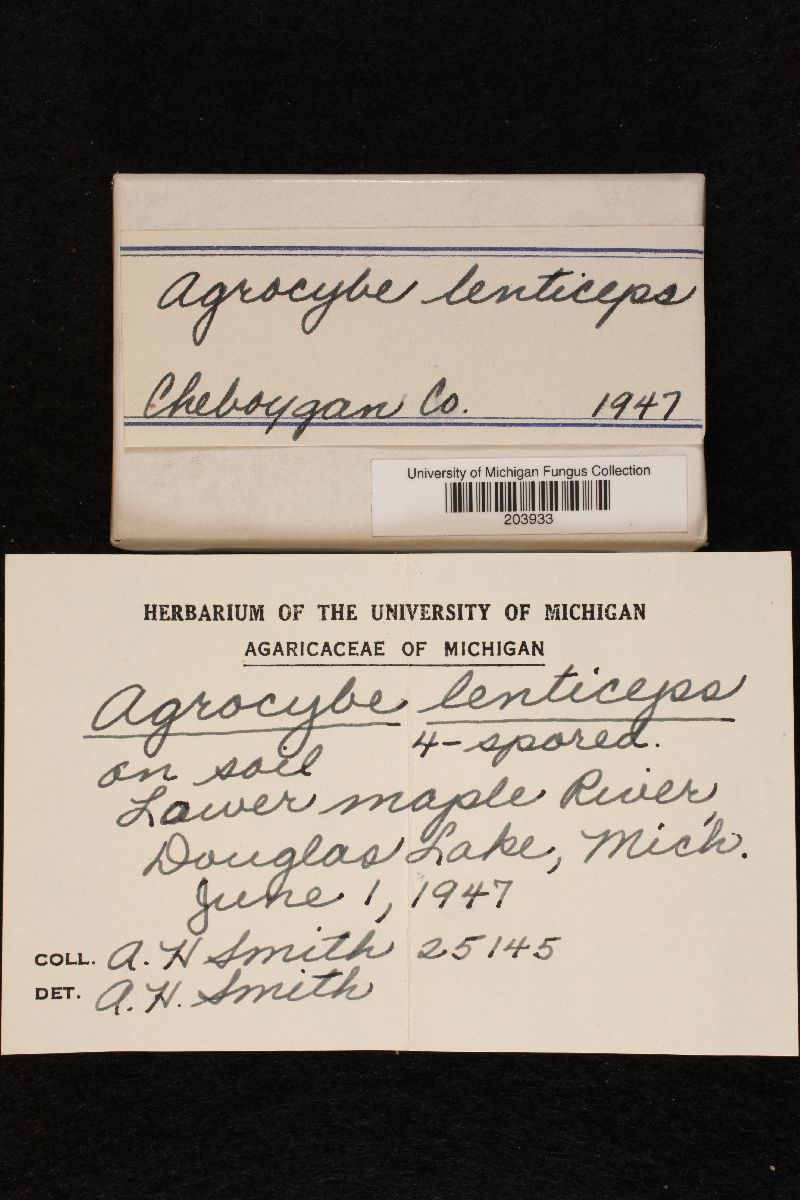 Agrocybe lenticeps
Cheboygan Co. 1947
University of Michigan Fungus Collection
203933
HERBARIUM OF THE UNIVERSITY OF MICHIGAN
AGARICACEAE OF MICHIGAN
Agrocybe lenticeps
on soil 4-spored.
Lower maple River,
Douglas Lake, Mich.
June 1, 1947
COLL. A. H Smith 25145
DET. A. H. Smith